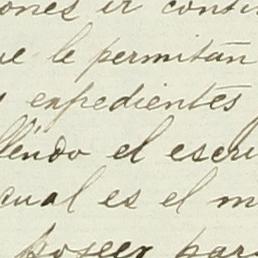 ones ir conti
ue le permitan
s expedientes
lléndo el escri
cual es el m
poseer par